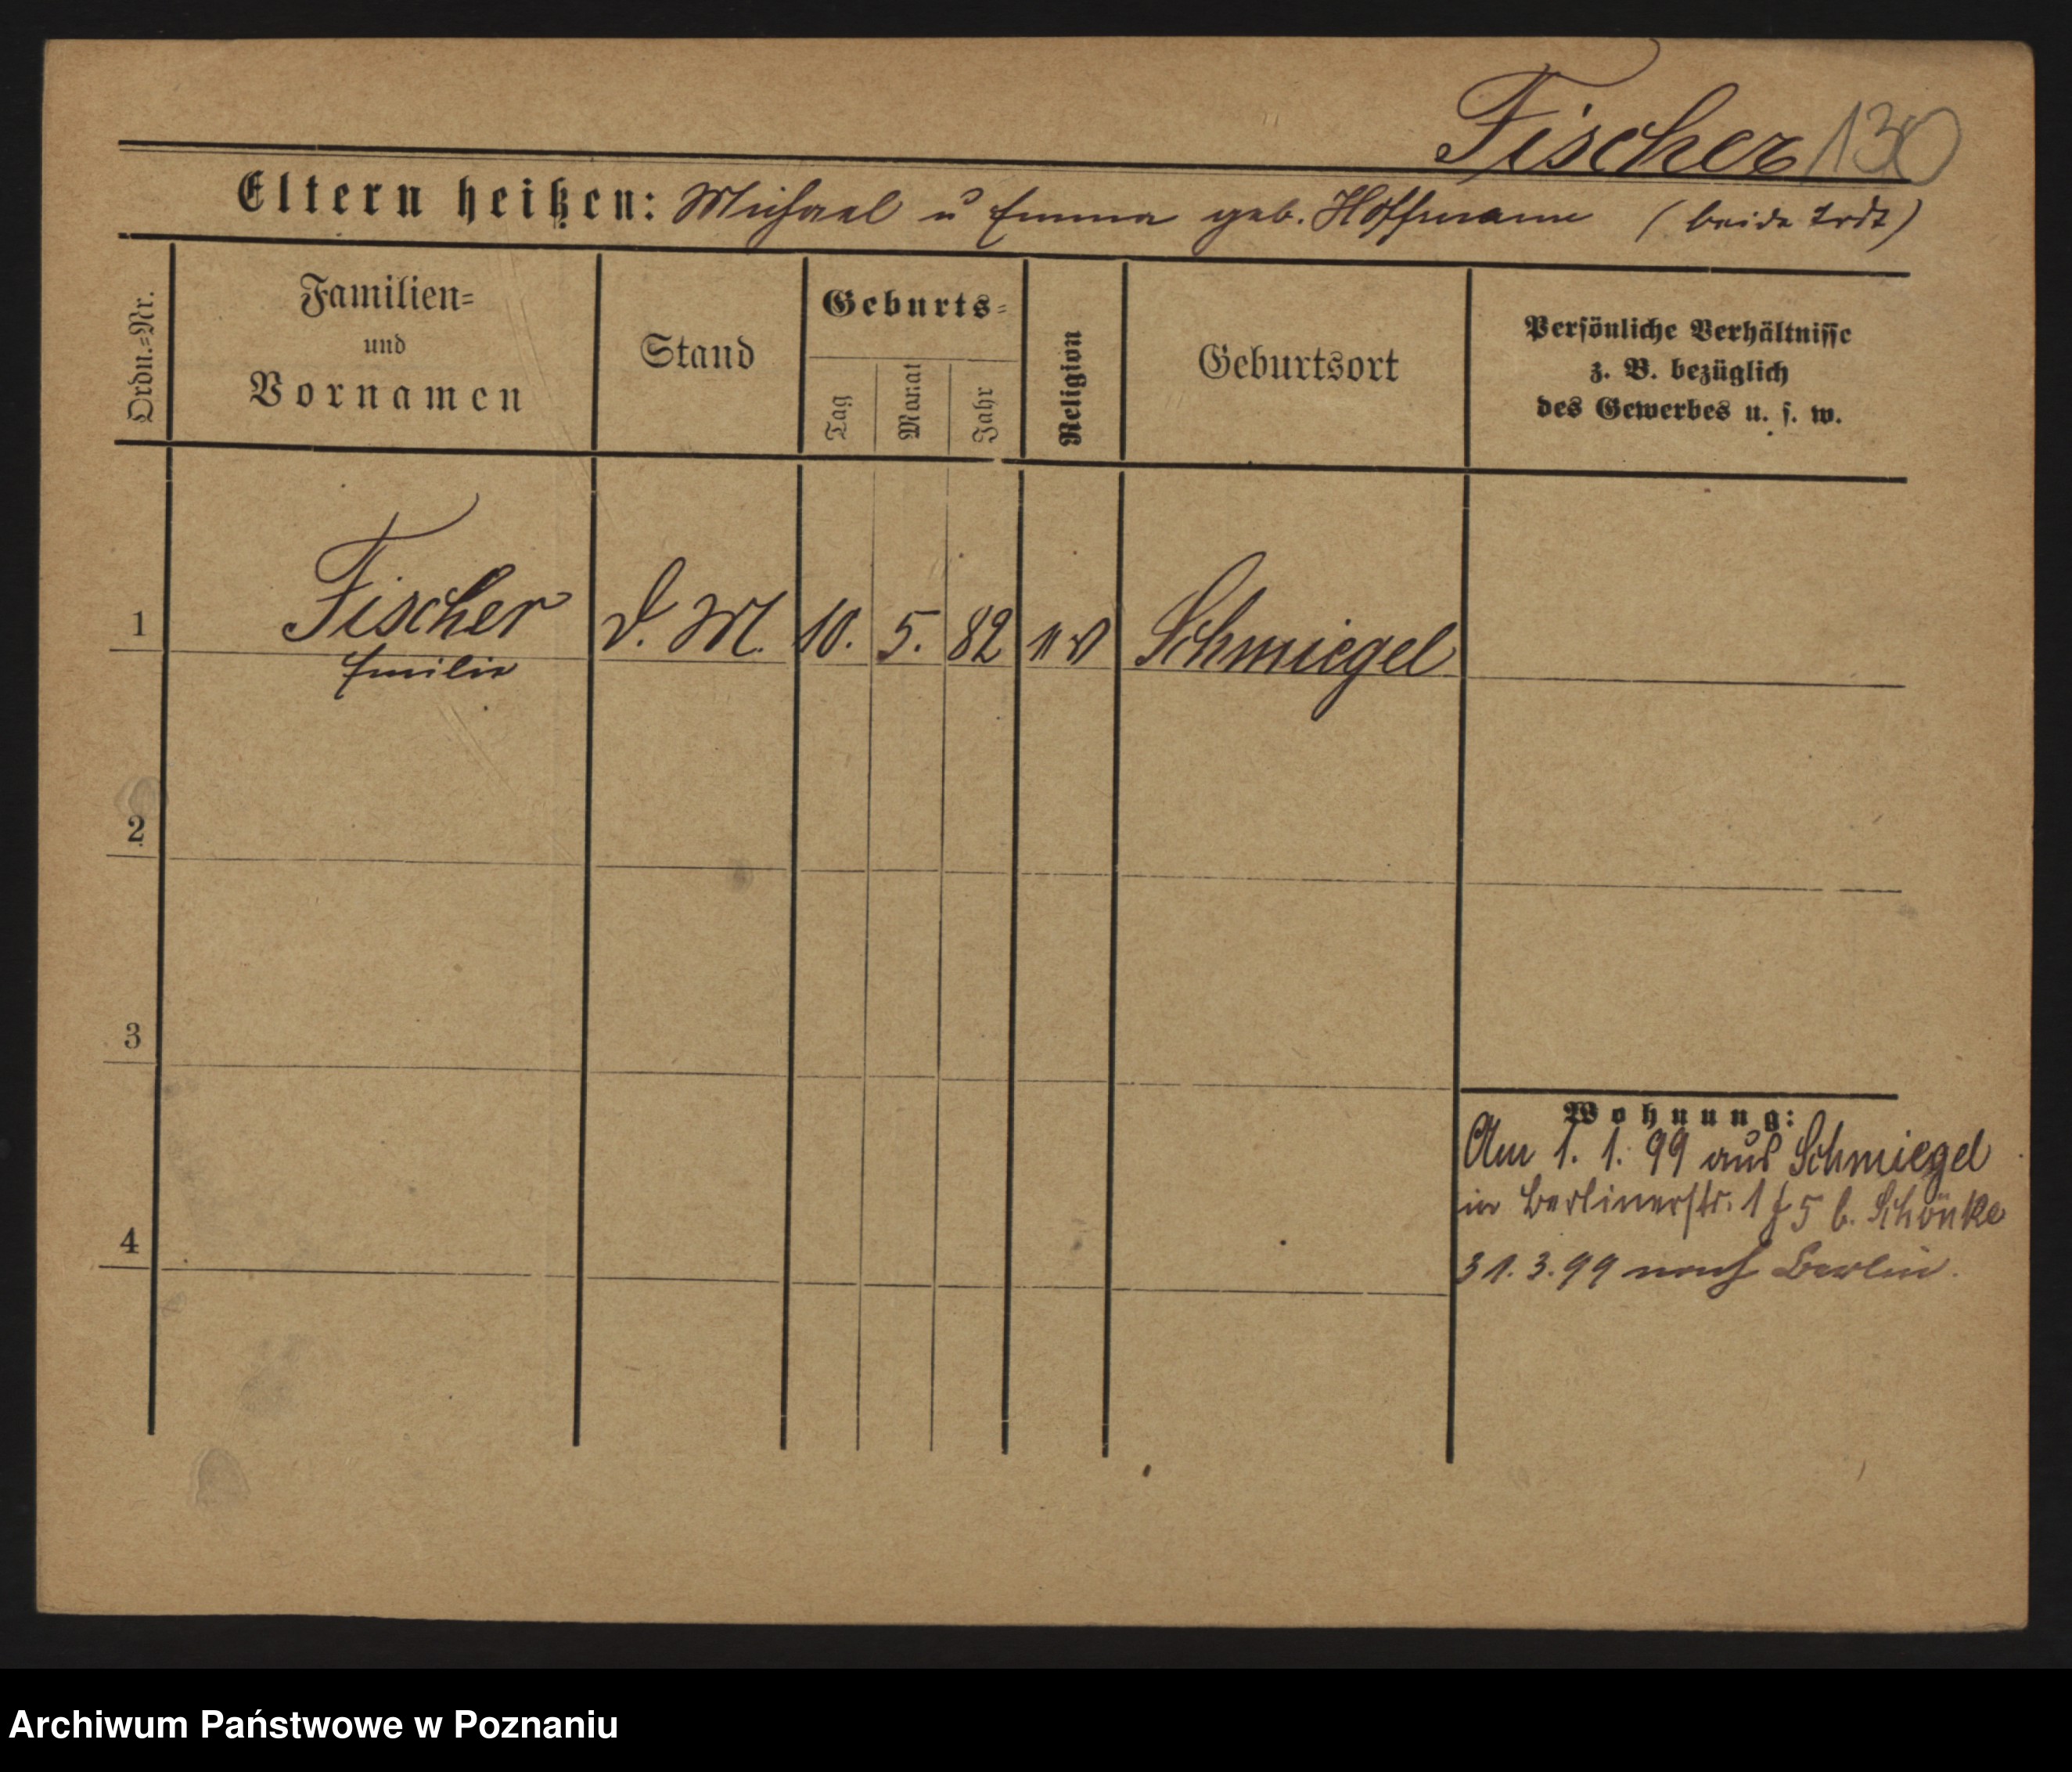 Fischer 130
Eltern heißen: Michael u Emma geb. Hoffmann (beide todt)
Ordn.=Nr.
Familien=
und
Vornamen
Stand
Geburts=
Tag
Monat
Jahr
Religion
Geburtsort
Persönliche Verhältnisse
z. B. bezüglich
des Gewerbes u. s. w.
1 Fischer D. M. 10. 5. 82 ev Schmiegel
Emilie
2
3
Wohnung:
Am 1. 1. 99 aus Schmiegel
in Berlinerstr. 15 b. Schönke
4
31. 3. 99 nach Berlin.
Archiwum Państwowe w Poznaniu